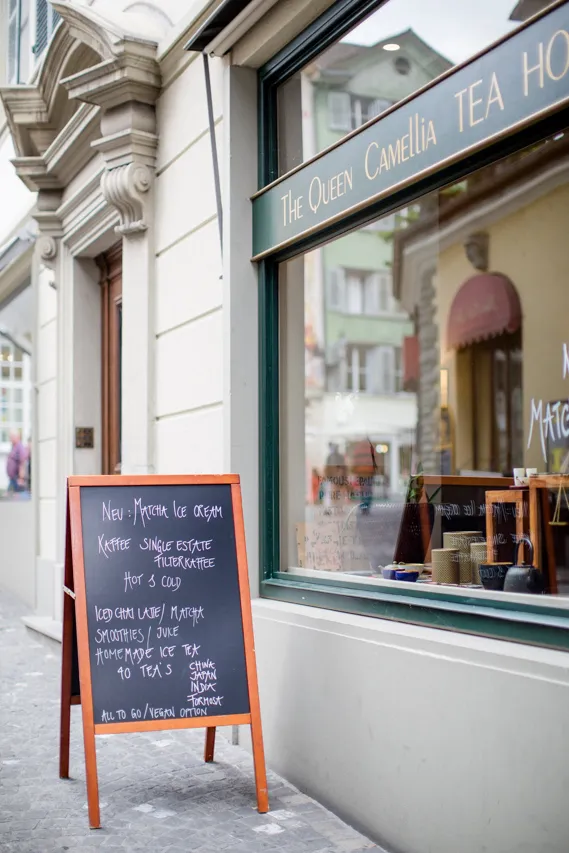 THE QUEEN CAMELLIA TEA HO
MATC
NEU: MATCHA ICE CREAM
KAFFEE SINGLE ESTATE
FILTERKAFFEE
HOT & COLD
ICED CHAI LATTE/ MATCHA
SMOOTHIES/ JUKE
HOMEMADE ICE TEA
40 TEA'S
CHINA
JAPAN
INDIA
FORMOSA
ALL TO GO/VEGAN OPTION